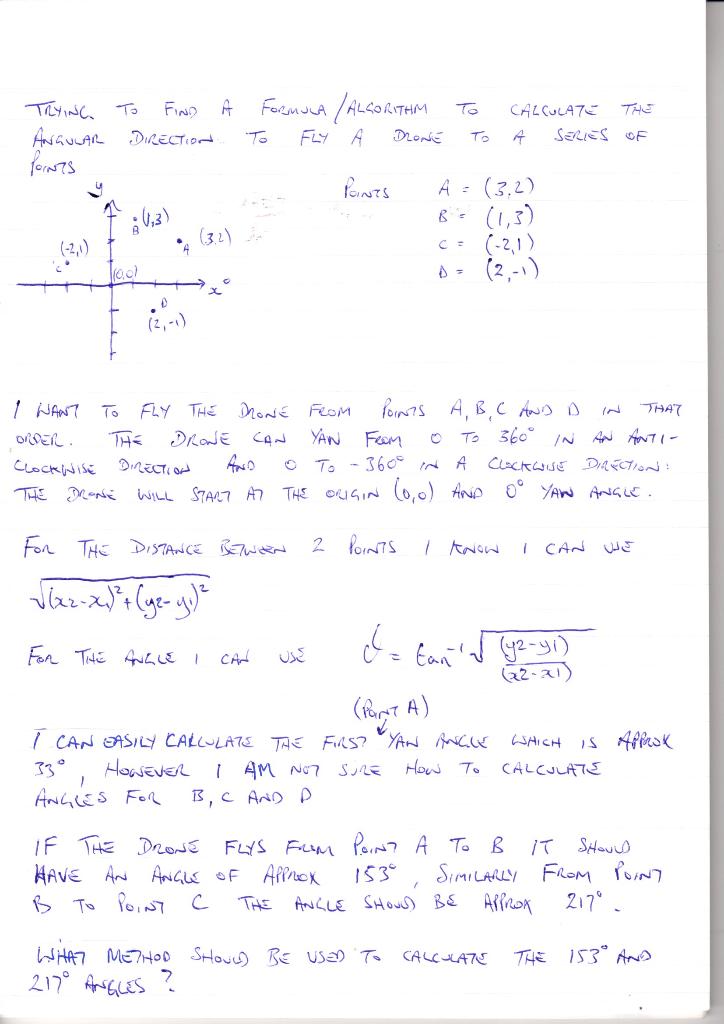 TRYING TO FIND A FORMULA/ALGORITHM TO CALCULATE THE
ANGULAR DIRECTION TO FLY A DRONE TO A SERIES OF
POINTS
y
POINTS A = (3,2)
B = (1,3)
C = (-2,1)
D = (2,-1)
(1,3)
B
(3,2)
A
(-2,1)
C
(0,0)
x°
D
(2,-1)
I WANT TO FLY THE DRONE FROM POINTS A, B, C AND D IN THAT
ORDER. THE DRONE CAN YAW FROM 0 TO 360° IN AN ANTI-
CLOCKWISE DIRECTION AND 0 TO -360° IN A CLOCKWISE DIRECTION:
THE DRONE WILL START AT THE ORIGIN (0,0) AND 0° YAW ANGLE.
FOR THE DISTANCE BETWEEN 2 POINTS I KNOW I CAN USE
√(x2-x1)²+(y2-y1)²
FOR THE ANGLE I CAN USE = tan⁻¹√(y2-y1)/(x2-x1)
(POINT A)
I CAN EASILY CALCULATE THE FIRST YAW ANGLE WHICH IS APPROX
33°, HOWEVER I AM NOT SURE HOW TO CALCULATE
ANGLES FOR B, C AND D
IF THE DRONE FLYS FROM POINT A TO B IT SHOULD
HAVE AN ANGLE OF APPROX 153°, SIMILARLY FROM POINT
B TO POINT C THE ANGLE SHOULD BE APPROX 217°.
WHAT METHOD SHOULD BE USED TO CALCULATE THE 153° AND
217° ANGLES?